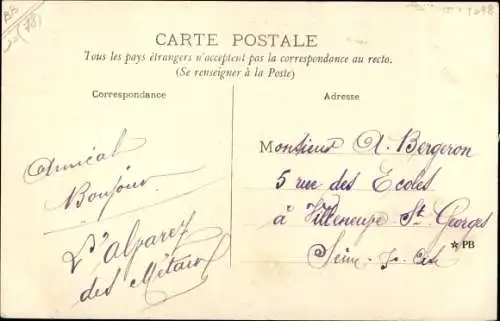 CARTE POSTALE
Tous les pays étrangers n'acceptent pas la correspondance au recto.
(Se renseigner à la Poste)
Correspondance
Adresse
Amical
Bonjour
des
Monsieur A. Bergeron
5 rue des Ecoles
à Villeneuve St Georges
Seine
PB